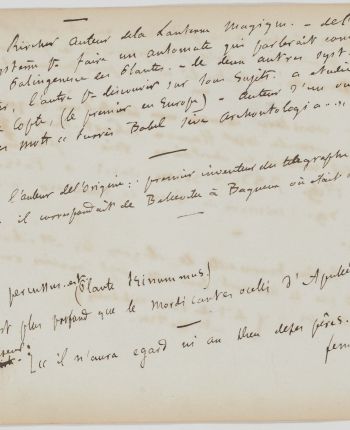 Kircher auteur de la Lanterne Magique. - de l'
système pr faire un automate qui parlerait com
Palingenesie des Plantes. - de deux autres syst
l'autre pr discourir sur tous sujets. a étudié
Copte, (le premier en Europe) - auteur d'un ou
mots « turris Babel sive archontologia
l'auteur de l'Origine : premier inventeur du telegraphe
il correspondait de à où était
percussus. est (Plaute Trinummus)
st plus profond que le Mordicantes ocelli d'Apulée
[« il n'aura egard ni au Dieu de ses pères.
fem